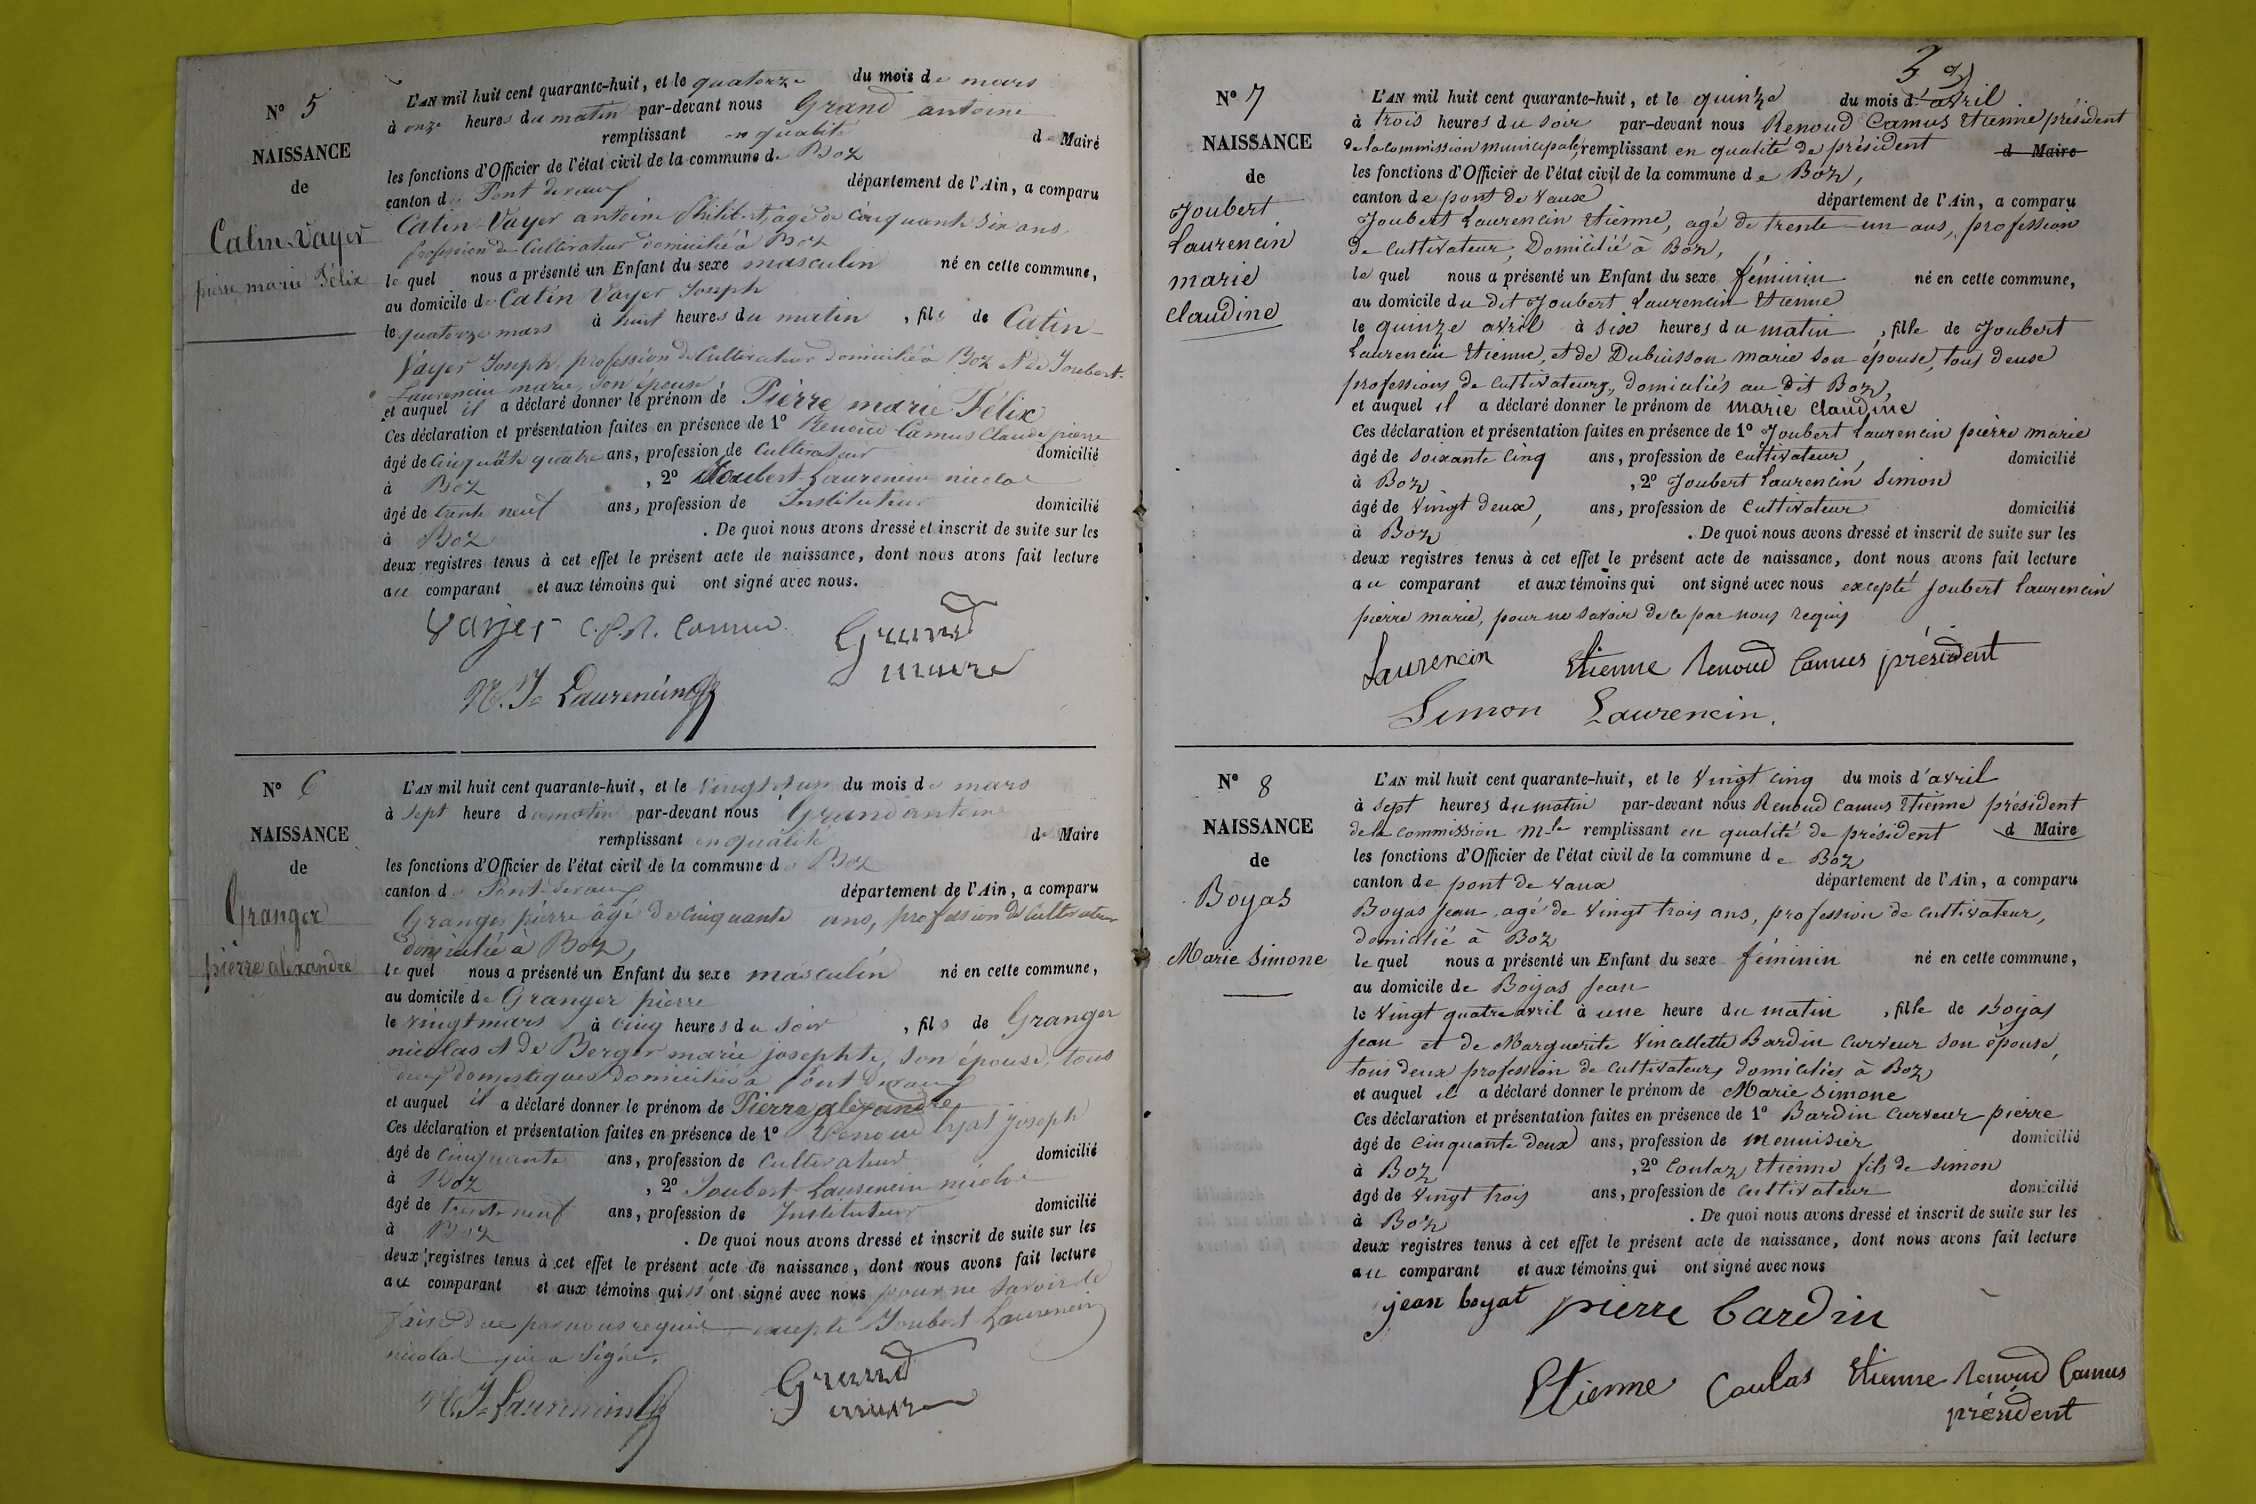 N° 5
NAISSANCE
de
Catin-Vayer
pierre marie Félix
L'AN mil huit cent quarante-huit, et le quatorze du mois de mars
à onze heures du matin par-devant nous Grand antoine
remplissant en qualité de Maire
les fonctions d'Officier de l'état civil de la commune de Boz
canton de Pont devaux département de l'Ain, a comparu
Catin-Vayer antoine Philibert, âgé de Cinquante Six ans,
profession de Cultivateur domicilié à Boz
le quel nous a présenté un Enfant du sexe masculin né en cette commune,
au domicile de Catin Vayer Joseph
le quatorze mars à huit heures du matin , fils de Catin-
Vayer Joseph, profession de Cultivateur domicilié à Boz et de Joubert-
Laurencin marie, son épouse,
et auquel il a déclaré donner le prénom de Pierre marie Félix
Ces déclaration et présentation faites en présence de 1° Renoud Camus Claude pierre
âgé de cinquante quatre ans, profession de Cultivateur domicilié
à Boz , 2° Joubert-Laurencin nicolas
âgé de trente neuf ans, profession de Instituteur domicilié
à Boz . De quoi nous avons dressé et inscrit de suite sur les
deux registres tenus à cet effet le présent acte de naissance, dont nous avons fait lecture
au comparant et aux témoins qui ont signé avec nous.
Vayer C.P.R. Camus Grand
maire
N. J. Laurencin
N° 6
NAISSANCE
de
Granger
pierre aléxandre
L'AN mil huit cent quarante-huit, et le vingt et un du mois de mars
à sept heure du matin par-devant nous Grand antoine
remplissant en qualité de Maire
les fonctions d'Officier de l'état civil de la commune de Boz
canton de Pont-devaux département de l'Ain, a comparu
Granger pierre âgé de cinquante ans, profession de Cultivateur
domicilié à Boz,
le quel nous a présenté un Enfant du sexe masculin né en cette commune,
au domicile de Granger pierre
le vingt mars à cinq heures du soir , fils de Granger
nicolas et de Berger marie josephte, son épouse, tous
deux domestiques domiciliés à Pont devaux
et auquel il a déclaré donner le prénom de Pierre aléxandre
Ces déclaration et présentation faites en présence de 1° Renoud lyat joseph
âgé de cinquante ans, profession de Cultivateur domicilié
à Boz , 2° Joubert-Laurencin nicolas
âgé de trente neuf ans, profession de Instituteur domicilié
à Boz . De quoi nous avons dressé et inscrit de suite sur les
deux registres tenus à cet effet le présent acte de naissance, dont nous avons fait lecture
au comparant et aux témoins qui n'ont signé avec nous pour ne savoir le
faire de ce par nous requis excepté Joubert Laurencin
nicolas qui a signé.
N. J. Laurencin Grand
maire
3
N° 7
NAISSANCE
de
Joubert
Laurencin
marie
claudine
L'AN mil huit cent quarante-huit, et le quinze du mois d'avril
à trois heures du soir par-devant nous Renoud Camus Etienne président
de la commission municipale, remplissant en qualité de président d Maire
les fonctions d'Officier de l'état civil de la commune de Boz,
canton de pont de vaux département de l'Ain, a comparu
Joubert Laurencin Etienne, agé de trente-un ans, profession
de cultivateur, Domicilié à Boz,
le quel nous a présenté un Enfant du sexe féminin né en cette commune,
au domicile du dit Joubert Laurencin Etienne
le quinze avril à six heures du matin , fille de Joubert
Laurencin Etienne, et de Dubuisson marie son épouse, tous deux
professions de cultivateurs, domiciliés au dit Boz,
et auquel il a déclaré donner le prénom de marie claudine
Ces déclaration et présentation faites en présence de 1° Joubert Laurencin pierre marie
âgé de soixante cinq ans, profession de cultivateur, domicilié
à Boz , 2° Joubert Laurencin Simon
âgé de vingt deux, ans, profession de cultivateur domicilié
à Boz . De quoi nous avons dressé et inscrit de suite sur les
deux registres tenus à cet effet le présent acte de naissance, dont nous avons fait lecture
au comparant et aux témoins qui ont signé avec nous excepté Joubert Laurencin
pierre marie, pour ne savoir de ce par nous requis
Laurencin Etienne Renoud Camus président
Simon Laurencin.
N° 8
NAISSANCE
de
Boyas
Marie Simone
L'AN mil huit cent quarante-huit, et le vingt cinq du mois d'avril
à sept heures du matin par-devant nous Renoud Camus Etienne président
de la commission M.le remplissant en qualité de président d Maire
les fonctions d'Officier de l'état civil de la commune de Boz
canton de pont de vaux département de l'Ain, a comparu
Boyas Jean, agé de vingt trois ans, profession de cultivateur,
domicilié à Boz
le quel nous a présenté un Enfant du sexe féminin né en cette commune,
au domicile de Boyas Jean
le vingt quatre avril à une heure du matin , fille de Boyas
Jean et de Marguerite Vincellette Bardin Curveur son épouse,
tous deux profession de cultivateurs domiciliés à Boz
et auquel il a déclaré donner le prénom de Marie Simone
Ces déclaration et présentation faites en présence de 1° Bardin Curveur pierre
âgé de cinquante deux ans, profession de menuisier domicilié
à Boz , 2° Coulaz Etienne fils de Simon
âgé de vingt trois ans, profession de cultivateur domicilié
à Boz . De quoi nous avons dressé et inscrit de suite sur les
deux registres tenus à cet effet le présent acte de naissance, dont nous avons fait lecture
au comparant et aux témoins qui ont signé avec nous
jean boyat pierre bardin
Etienne Coulas Etienne Renoud Camus
président